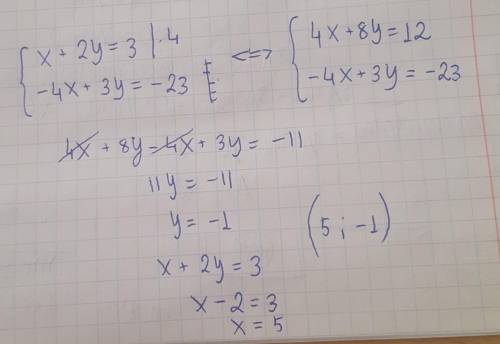 { x + 2y = 3 | · 4 <=> { 4x + 8y = 12
-4x + 3y = -23 -4x + 3y = -23
4x + 8y - 4x + 3y = -11
11y = -11
y = -1 (5 ; -1)
x + 2y = 3
x - 2 = 3
x = 5